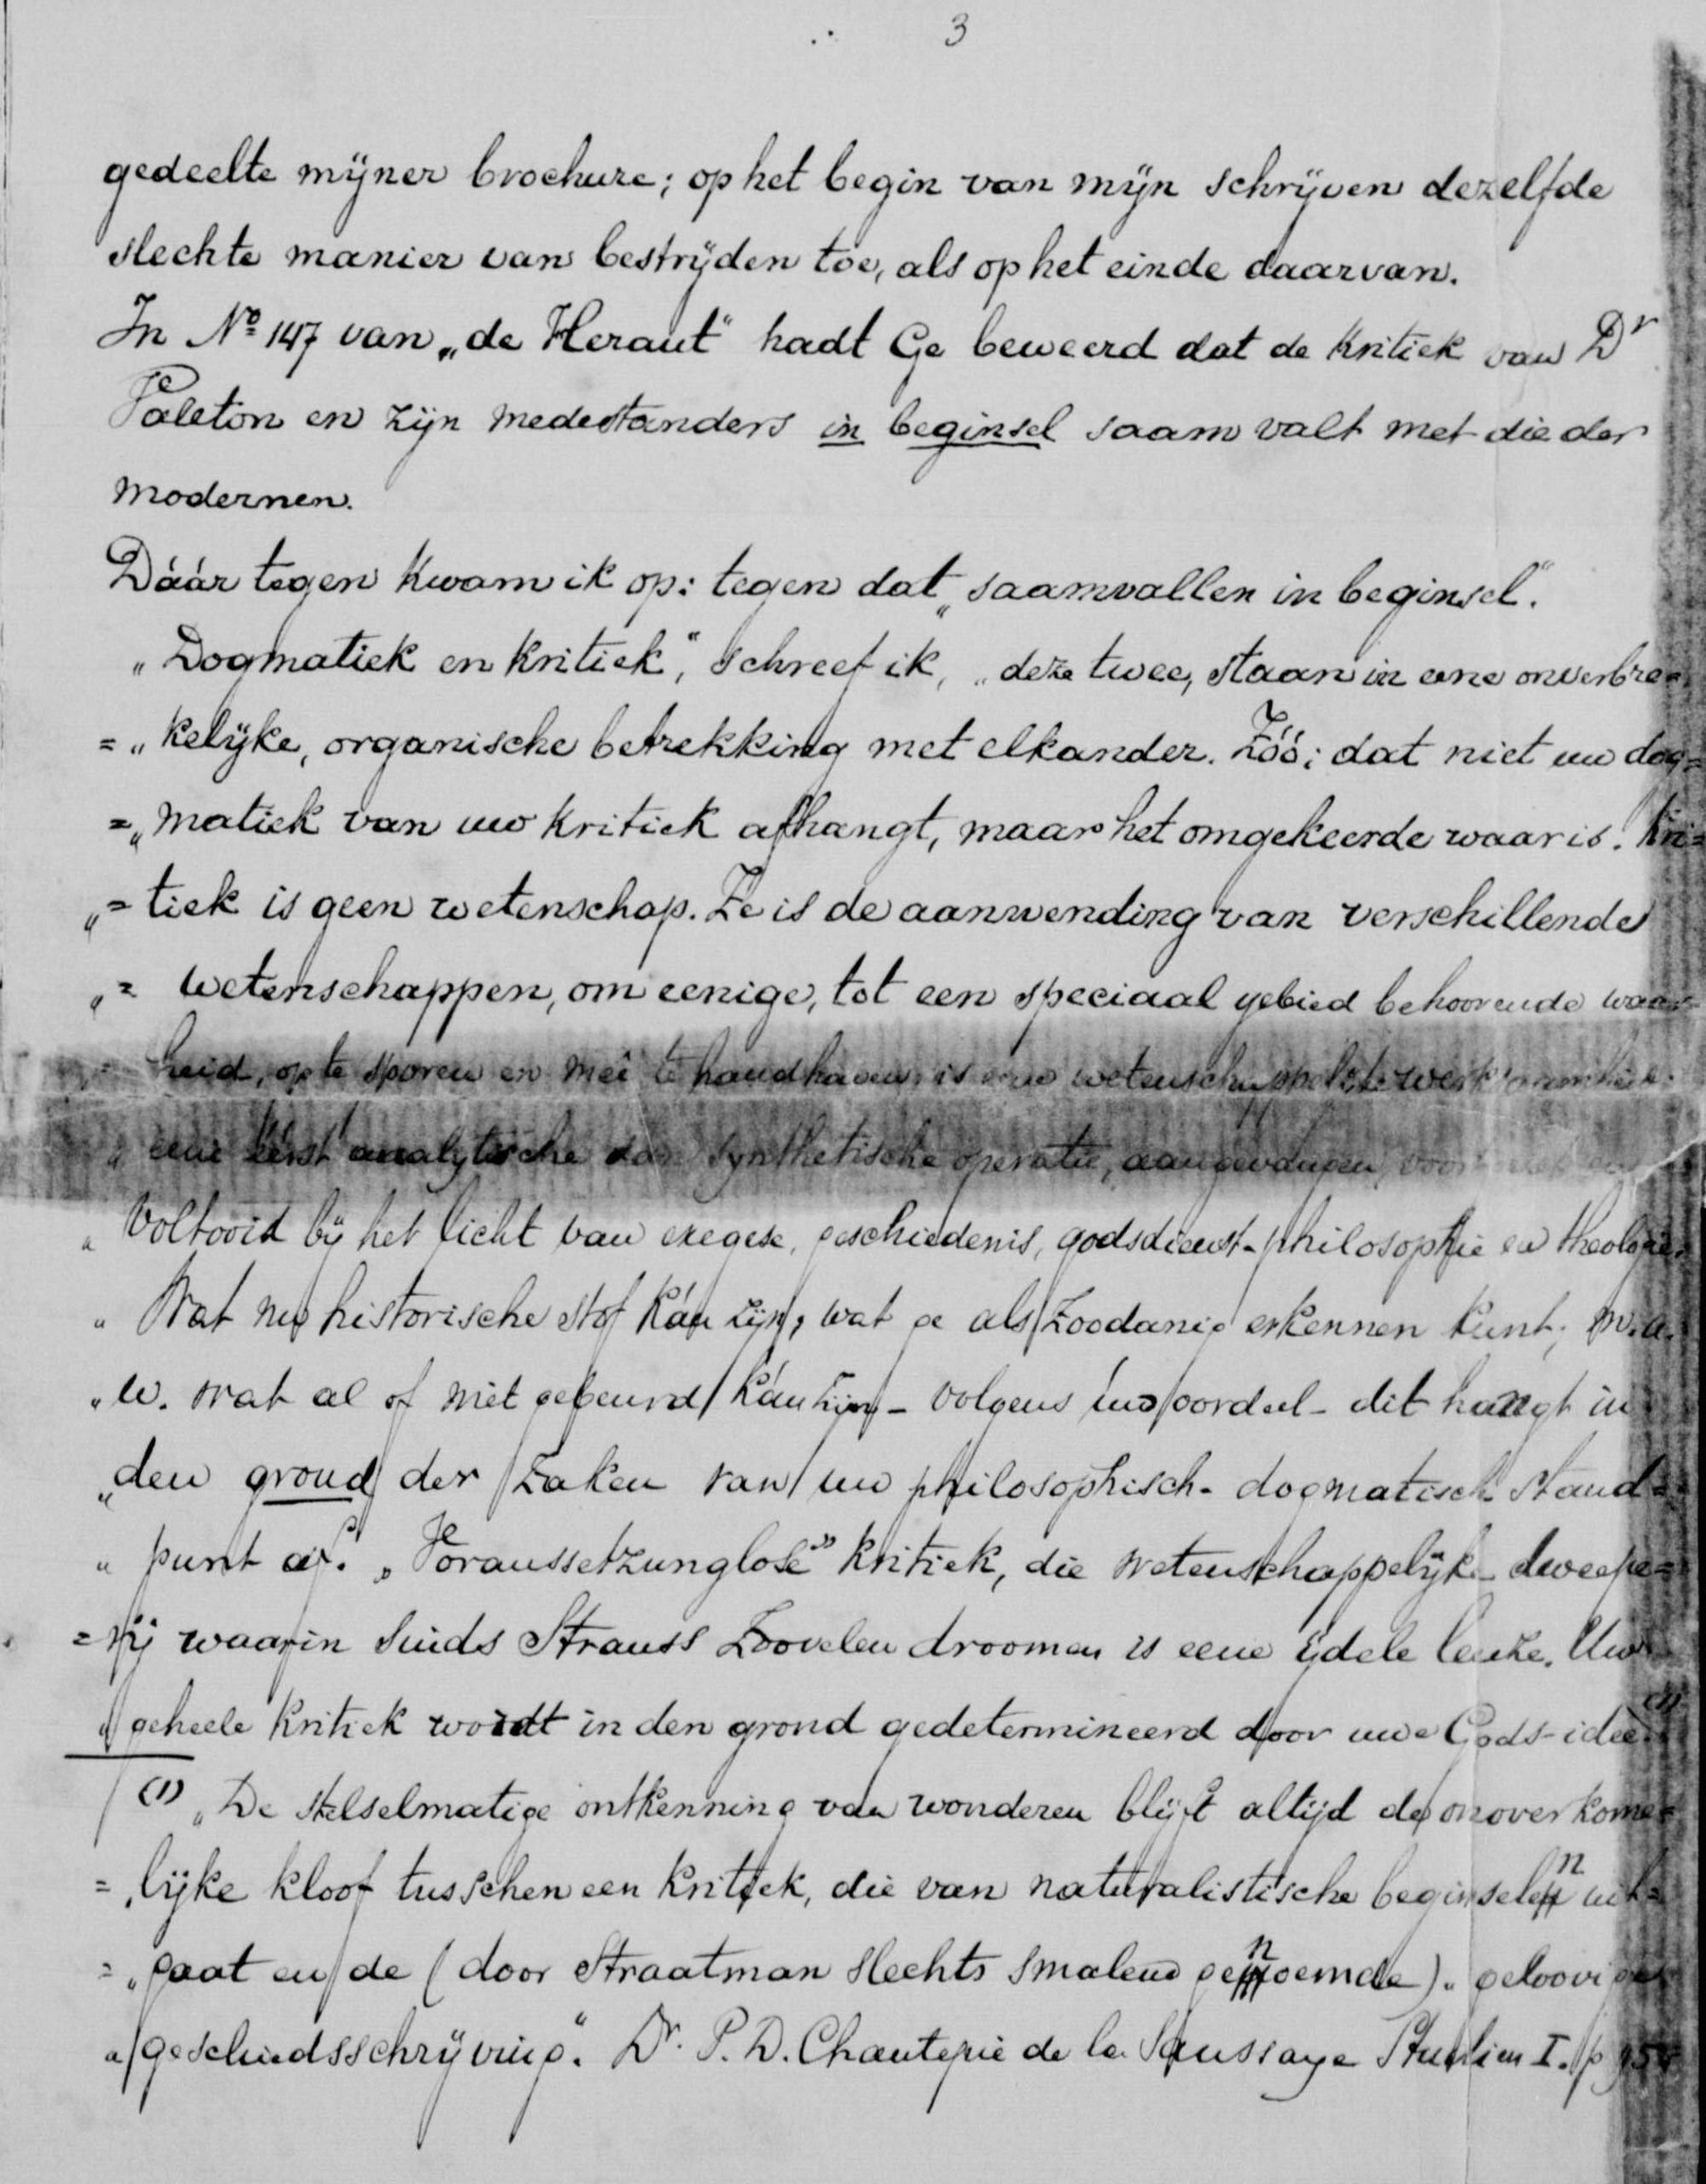 3
gedeelte mijner brochure; op het begin van mijn schrijven dezelfde
slechte manier van bestrijden toe, als op het einde daarvan.
In No 147 van „de Heraut" hadt Ge beweerd dat de kritiek van Dr
Valeton en zijn medestanders in beginsel saam valt met die der
modernen.
Dáár tegen kwam ik op: tegen dat „saamvallen in beginsel".
„Dogmatiek en kritiek", schreef ik, „deze twee, staan in eene onverbre=
=„kelijke, organische betrekking met elkander. Zóó; dat niet uw dog=
=„matiek van uw kritiek afhangt, maar het omgekeerde waar is. Kri=
„=tiek is geen wetenschap. Ze is de aanwending van verschillende
„= wetenschappen, om eenige, tot een speciaal gebied behoorende waar=
heid, op te sporen en meê te handhaven; is eene wetenschappelijke werkzaamheid.
„eene eerst analytische dan synthetische operatie, aangevangen,
„Voltooid bij het licht van exegese, geschiedenis, godsdienst-philosophie en theologie.
„Wat nu historische stof kán zijn, wat ge als zoodanig erkennen kunt; m.a.
„w. wat al of niet gebeurd kán zijn – volgens uw oordeel – dit hangt in
„den grond der zaken van uw philosophisch-dogmatisch stand=
„punt af. „Voraussetzunglose" kritiek, die wetenschappelijke dweepe=
=rij waarin sinds Strauss zoovelen droomen is eene ijdele leuze. Uw
„geheele kritiek wordt in den grond gedetermineerd door uwe Gods-idee (1)
(1) „De stelselmatige ontkenning van wonderen blijft altijd de onoverkome=
=„lijke kloof tusschen een kritiek, die van naturalistische beginselen uit=
=„gaat en de (door Straatman slechts smalend genoemde) „geloovige
„geschiedsschrijving". Dr. P. D. Chantepie de la Saussaye Studien I. p